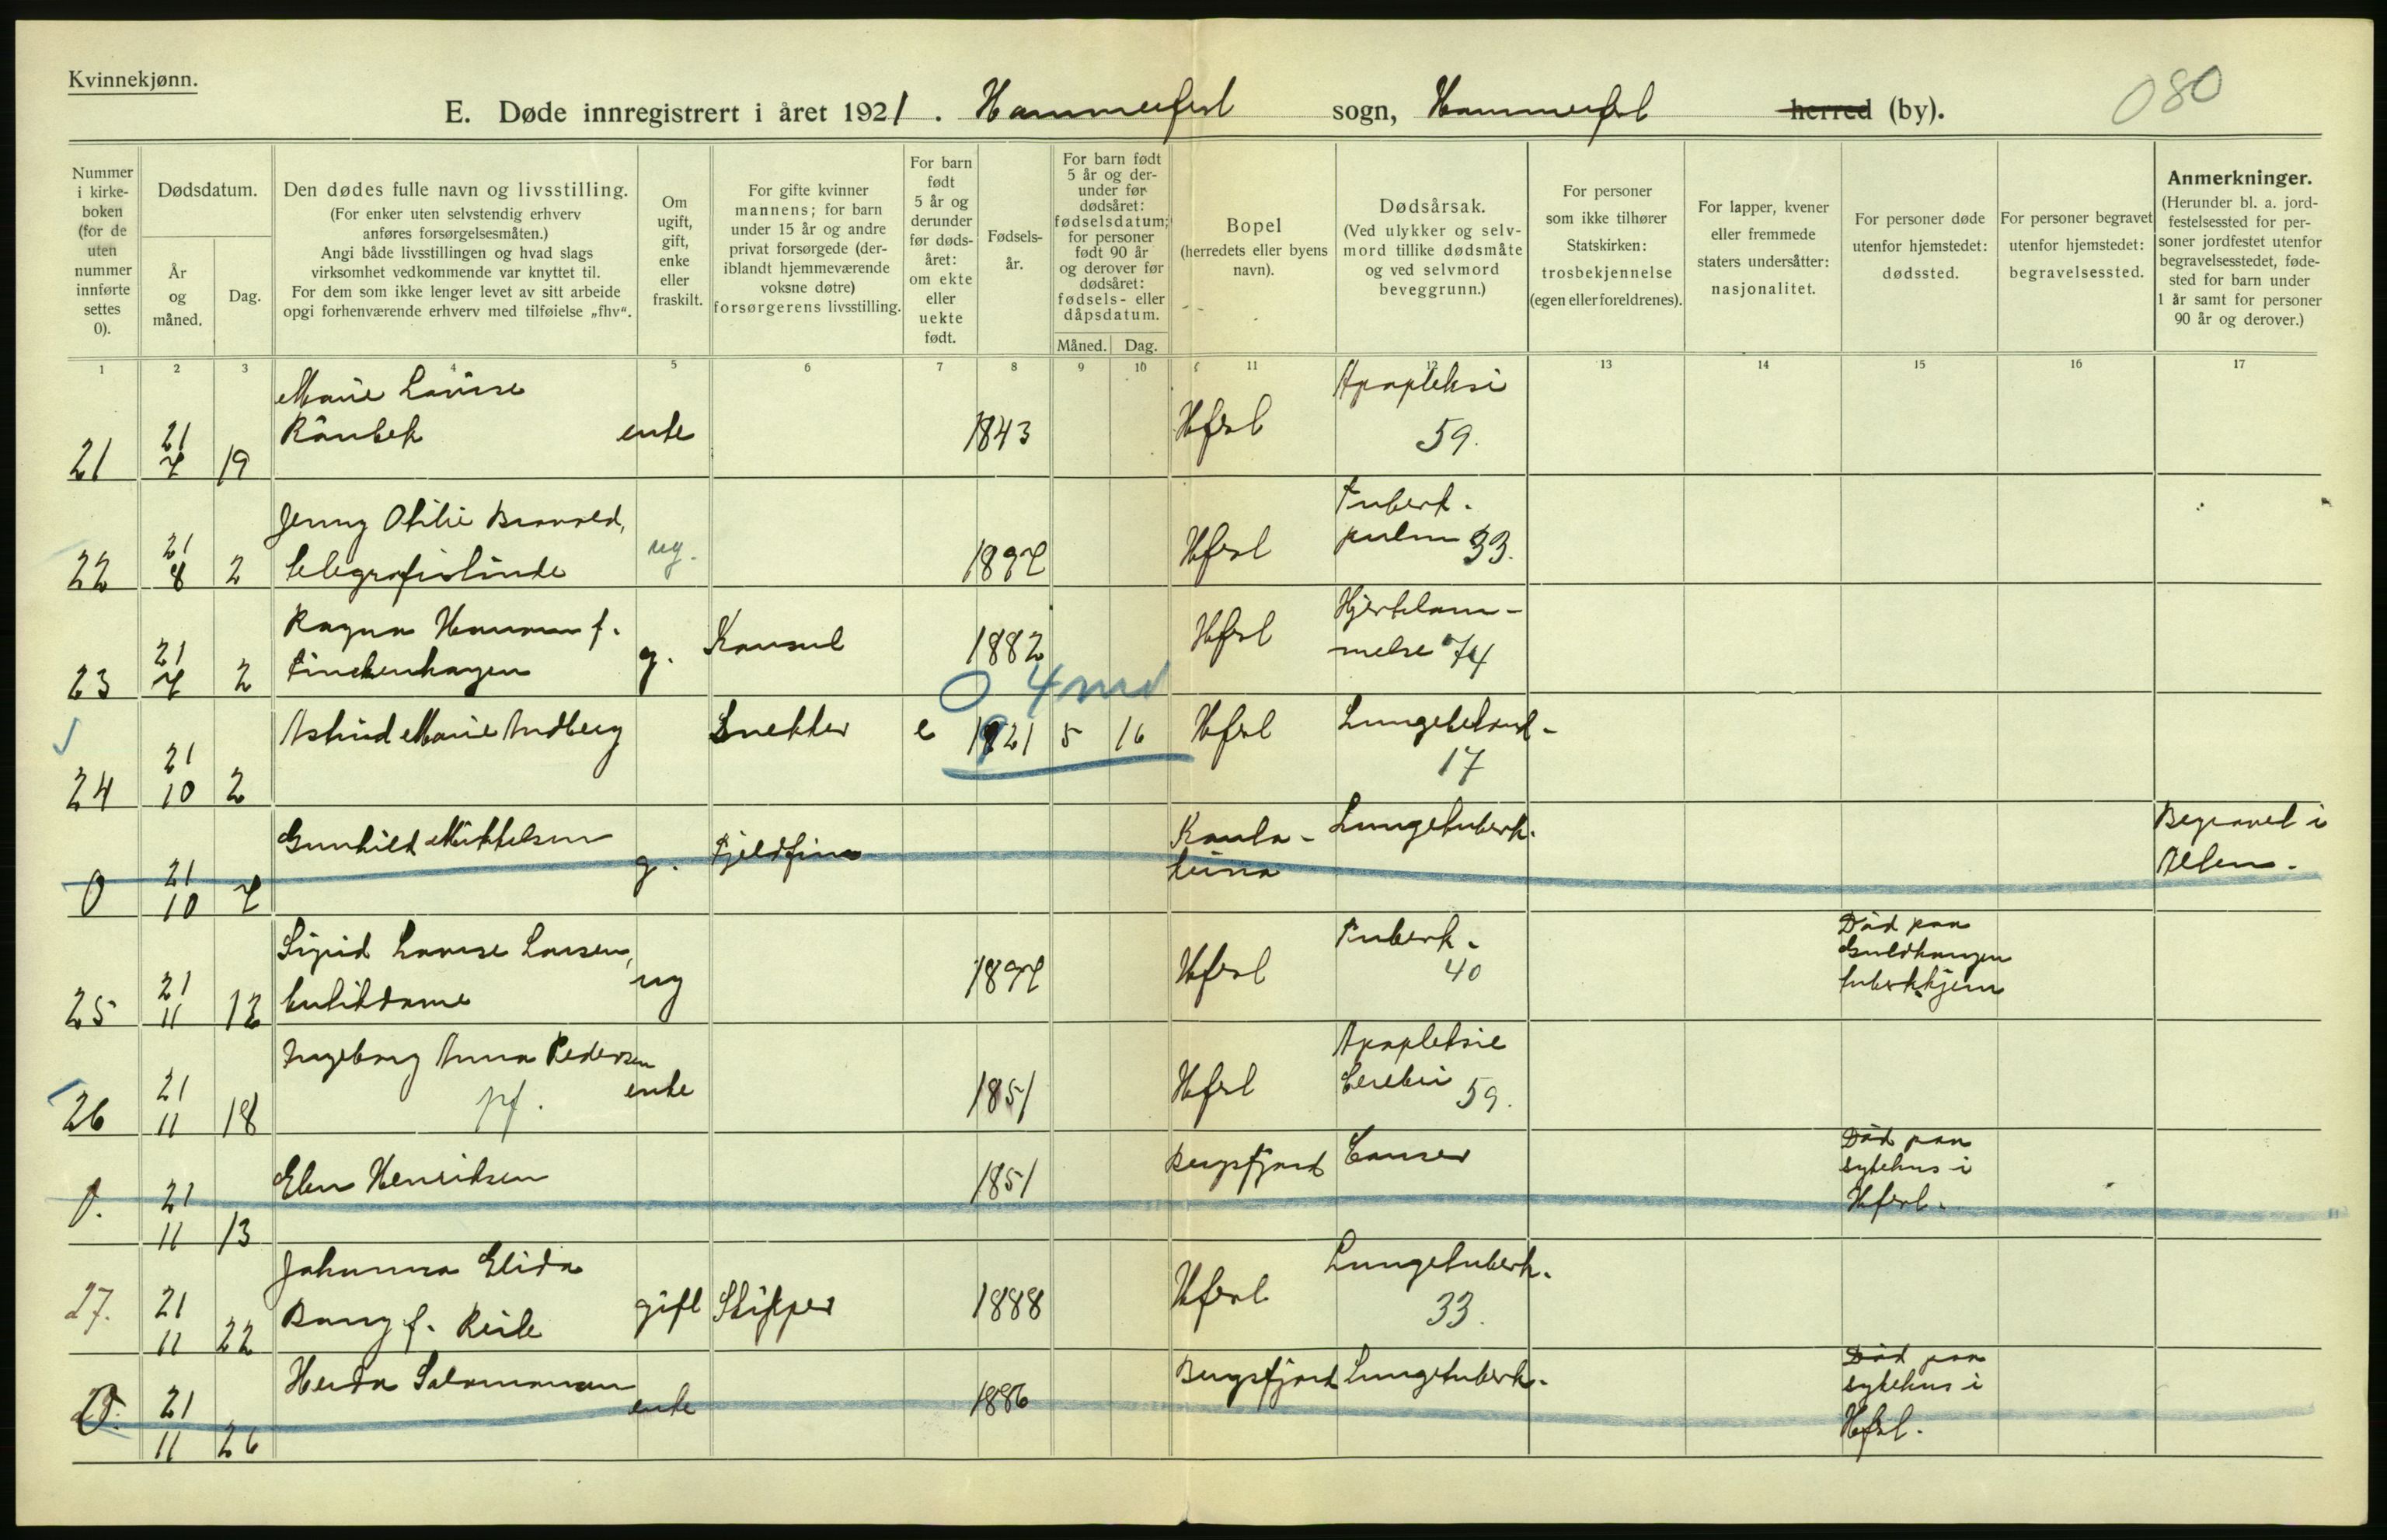 Kvinnekjønn.
080
E. Døde innregistrert i året 1921. Hammerfest sogn, Hammerfest herred (by).
Nummer i kirkeboken (for de uten nummer innførte settes 0).
Dødsdatum.
År og måned.
Dag.
Den dødes fulle navn og livsstilling.
(For enker uten selvstendig erhverv
anføres forsørgelsesmåten.)
Angi både livsstillingen og hvad slags
virksomhet vedkommende var knyttet til.
For dem som ikke lenger levet av sitt arbeide
opgi forhenværende erhverv med tilføielse „fhv“.
Om ugift, gift, enke eller fraskilt.
For gifte kvinner
mannens; for barn
under 15 år og andre
privat forsørgede (der-
iblandt hjemmeværende
voksne døtre)
forsørgerens livsstilling.
For barn født 5 år og derunder før døds-året: om ekte eller uekte født.
Fødsels-
år.
For barn født
5 år og der-
under før
dødsåret:
fødselsdatum;
for personer
født 90 år
og derover før
dødsåret:
fødsels- eller
dåpsdatum.
Måned. Dag.
Bopel
(herredets eller byens
navn).
Dødsårsak.
(Ved ulykker og selv-
mord tillike dødsmåte
og ved selvmord
beveggrunn.)
For personer
som ikke tilhører
Statskirken:
trosbekjennelse
(egen eller foreldrenes).
For lapper, kvener
eller fremmede
staters undersåtter:
nasjonalitet.
For personer døde
utenfor hjemstedet:
dødssted.
For personer begravet
utenfor hjemstedet:
begravelsessted.
Anmerkninger.
(Herunder bl. a. jord-
festelsessted for per-
soner jordfestet utenfor
begravelsesstedet, føde-
sted for barn under
1 år samt for personer
90 år og derover.)
1 2 3 4 5 6 7 8 9 10 11 12 13 14 15 16 17
21 21/7 19 Marie Lovise
Rånbek enke 1843 Hfest Apopleksi
59.
22 21/8 2 Jenny Otilie
telegrafistinde ug. 1897 Hfest Tuberk.
pulm 33.
23 21/7 2 Ragna f.
Finckenhagen g. Konsul 1882 Hfest Hjertelam-
melse 74
0 4 md
24 21/10 2 Astrid Marie Andberg Snekker e 1921 5 16 Hfest
17
0 21/10 7 Gunhild Mikkelsen g. Fjeldfinn Kauto-
keino Lungetuberk. Begravet i
Alten.
25 21/11 12 Sigrid Lovise Larsen,
butikdame ug 1897 Hfest Tuberk.
40 Död paa
Guldhaugen
tuberkhjem
26 21/11 18 Ingeborg Anna Pedersen
pf. enke 1851 Hfest Apopleksie
Cerebri 59.
0. 21/11 13 Elen Henriksen 1851 Bergsfjord Canser Död paa
sykehus i
Hfest.
27. 21/11 22 Johanna Elida
Bang f. gift Skipper 1888 Hfest Lungetuberk.
33.
0. 21/11 26 Herda Salamonsen enke 1886 Bergsfjord Lungetuberk. Död paa
sykehus i
Hfest.